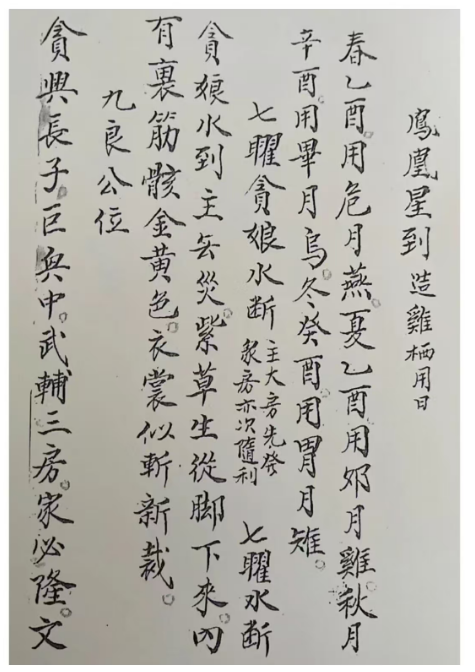 鳳凰星到 造雞栖用日
春乙酉。用危月燕。夏乙酉用邜月雞秋月
辛酉。用畢月烏。冬癸酉。用胃月雉。
七曜貪娘水断 主大房先癸
衆房亦次隨利 七曜水断
貪娘水到主無災紫草生從脚下來內
有裏筋骸金黃色。衣裳似斬新裁。
九良公位
貪興長子。巨兵中。武輔三房。家必隆。文